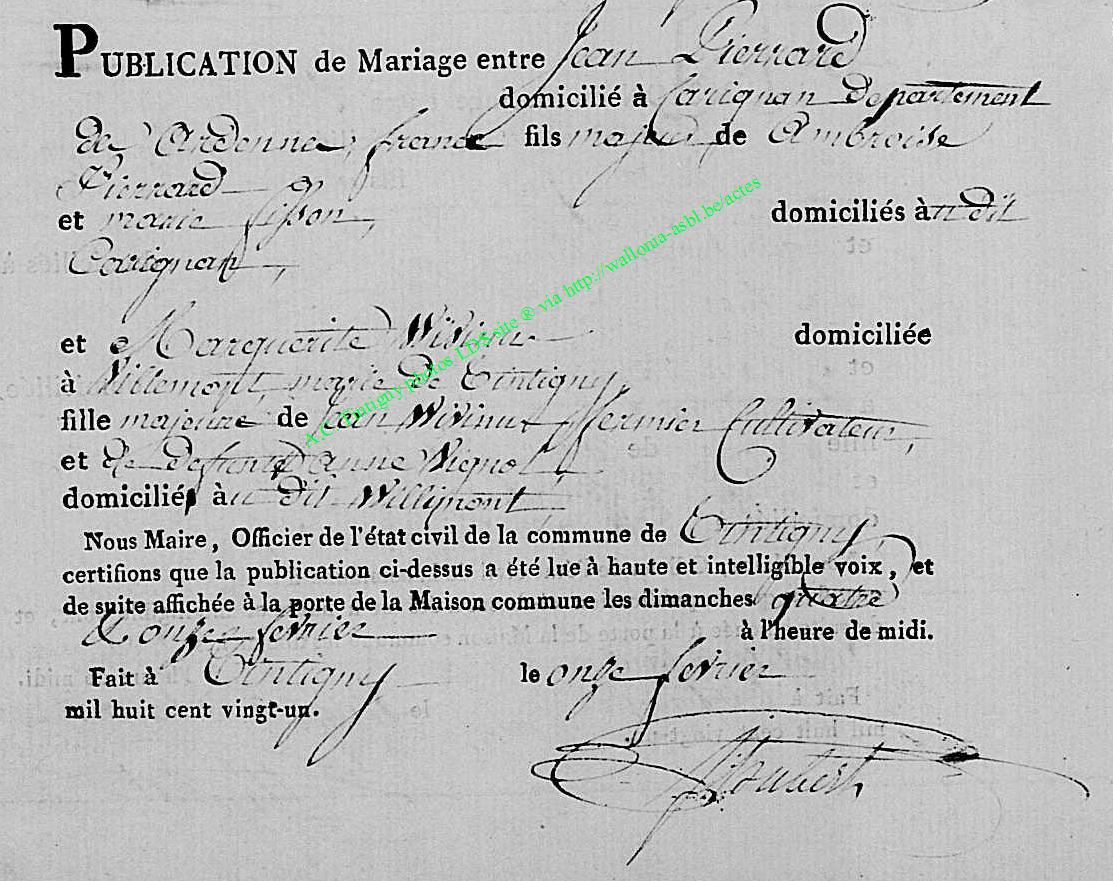 PUBLICATION de Mariage entre Jean Pierrard
domicilié à Carignan departement
de Ardenne, france fils majeur de Ambroise
Pierrard
et marie Sisson, domiciliés à u dit
Carignan,
et Marguerite domiciliée
à Villemont, marie de Tintigny,
fille majeure de Jean fermier Cultivateur,
et de defunte anne
domiciliés à u dit Willimont,
Nous Maire, Officier de l'état civil de la commune de Tintigny,
certifions que la publication ci-dessus a été lue à haute et intelligible voix, et
de suite affichée à la porte de la Maison commune les dimanches quatre
& onze fevrier à l'heure de midi.
Fait à Tintigny le onze fevrier
mil huit cent vingt-un.
A.C. Tintigny photos LDS site ® via http://wallonia-asbl.be/actes